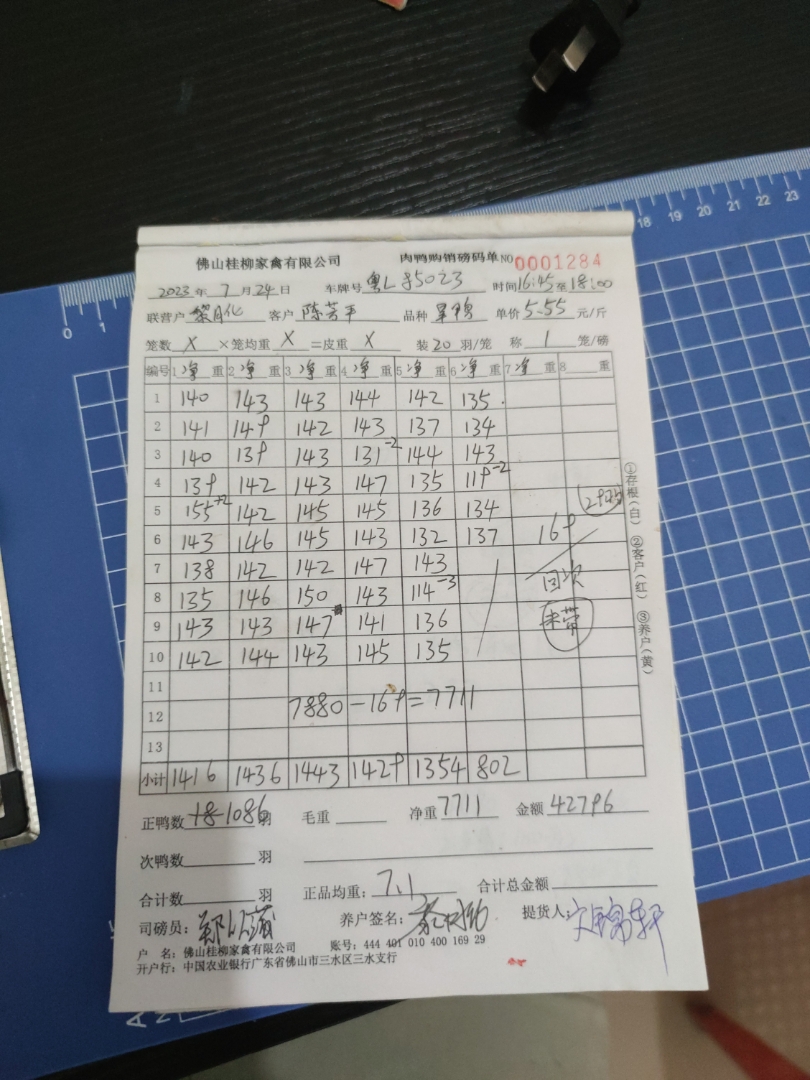 18 19 20 21 22 23
佛山桂柳家禽有限公司 肉鸭购销磅码单 NO 0001284
2023 年 7 月 24 日 车牌号 粤L 85023 时间 16:45 至 18:00
联营户 客户 陈芳平 品种 单价 5.55 元/斤
笼数 X ×笼均重 X =皮重 X 装 20 羽/笼 称 1 笼/磅
编号 1 净 重 2 净 重 3 净 重 4 净 重 5 净 重 6 净 重 7 净 重 8 重
1 140 143 143 144 142 135
2 141 149 142 143 137 134
3 140 139 143 131-2 144 143
4 139 142 143 147 135 119-2
5 155+2 142 145 145 136 134
6 143 146 145 143 132 137 169
7 138 142 142 147 143
8 135 146 150 143 114-3 回次
9 143 143 147 141 136 未带
10 142 144 143 145 135
11
12 7880-169=7711
13
小计 1416 1436 1443 1429 1354 802
①存根(白) ②客户(红) ③养户(黄)
正鸭数 1086 羽 毛重 净重 7711 金额 42796
次鸭数 羽
合计数 羽 正品均重: 7.1 合计总金额
司磅员: 养户签名: 提货人:
户 名: 佛山桂柳家禽有限公司 账号: 444 401 010 400 169 29
开户行: 中国农业银行广东省佛山市三水区三水支行